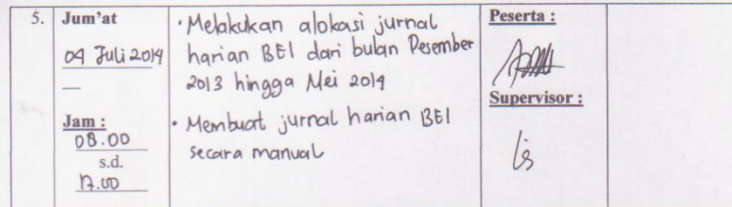 5.
Jum'at
04 Juli 2014
Jam :
08.00
s.d.
17.00
• Melakukan alokasi jurnal
harian BEI dari bulan Desember
2013 hingga Mei 2014
• Membuat jurnal harian BEI
secara manual
Peserta :
Supervisor :